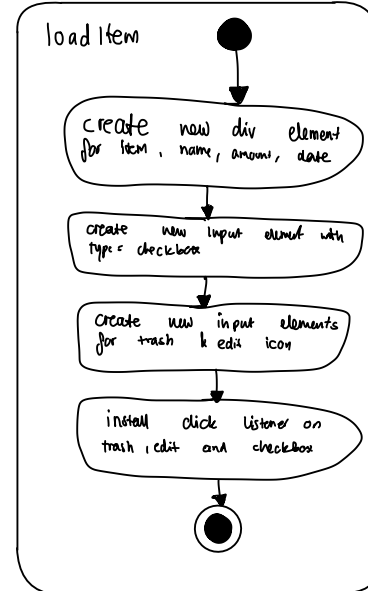 load Item
create new div element
for item, name, amount, date
create new input element with
type = checkbox
create new input elements
for trash & edit icon
install click listener on
trash, edit and checkbox